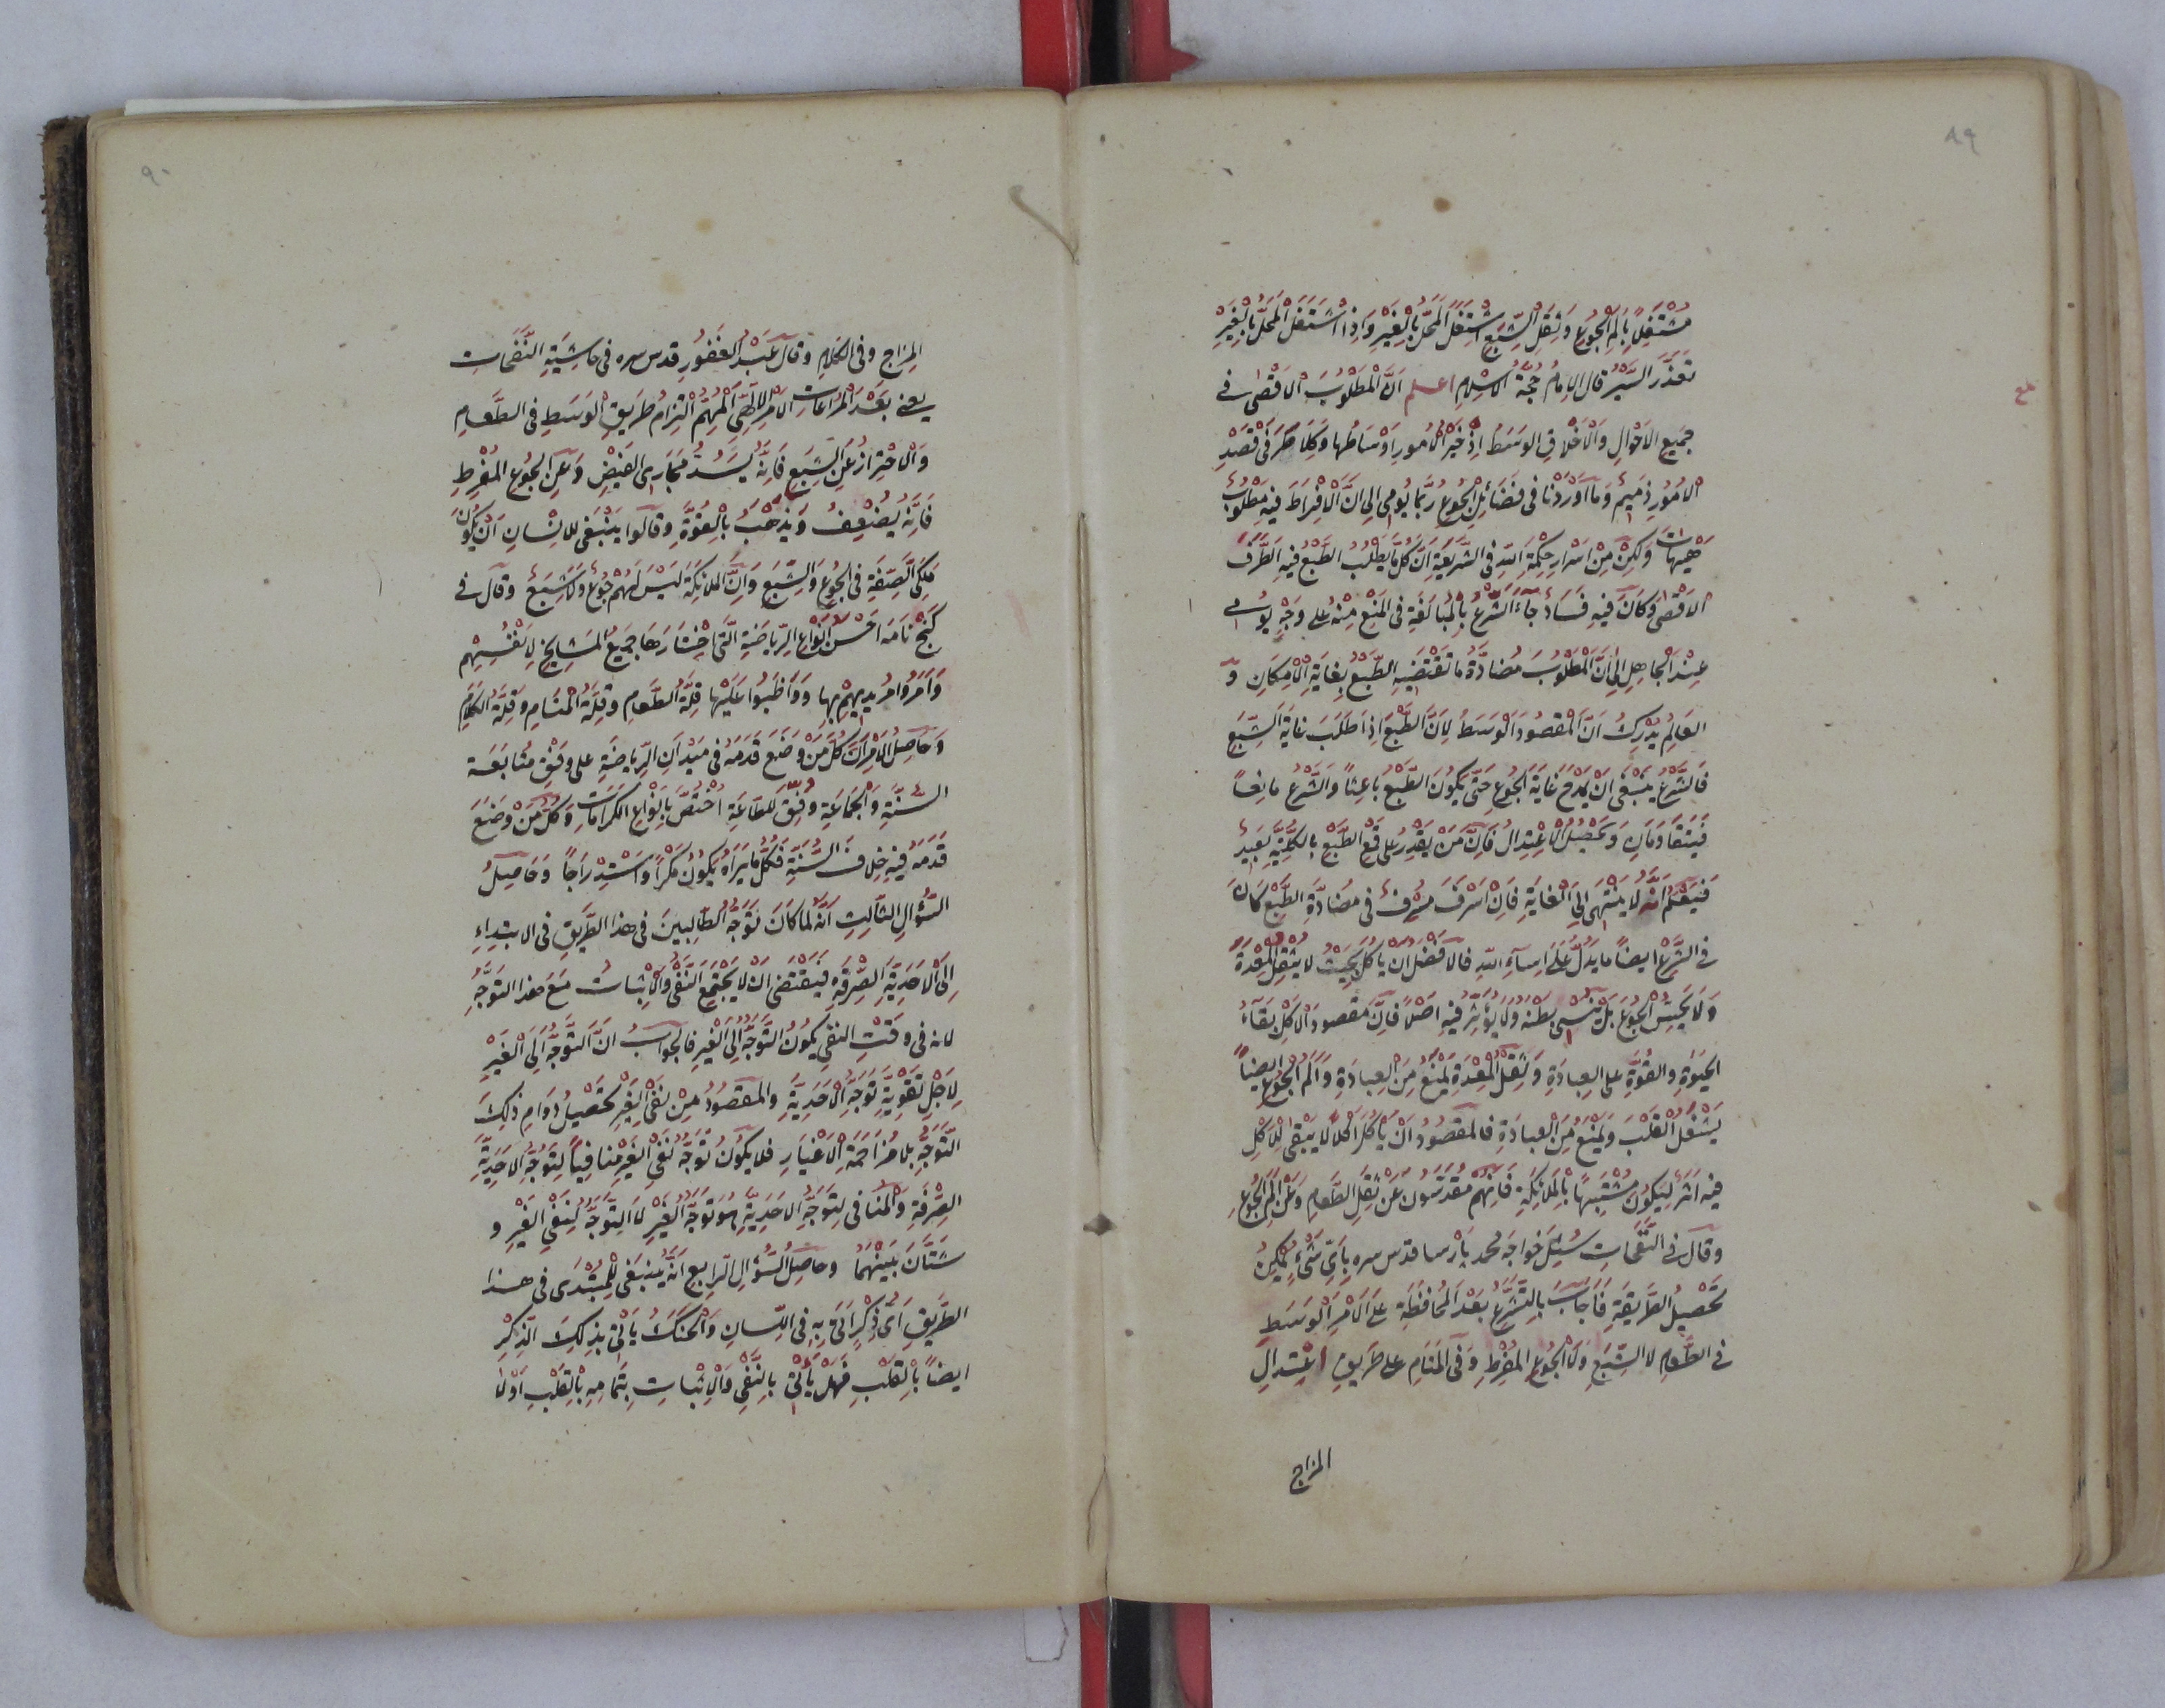 ٨٩
مُشْتَغِلًا بِأَلَمِ الْجُوعِ وَثِقَلِ الشِّبَعِ اشْتَغَلَ الْمَحَلُّ بِالْغَيْرِ وَاِذَا اشْتَغَلَ الْمَحَلُّ بِالْغَيْرِ
تعذّر السَّيْرُ قال الامامُ حُجَّةُ الاسْلامِ اعلم اَنَّ الْمَطْلُوبَ الْاَقْصٰى فى
جميع الاَحْوالِ وَالْاَخْلاقِ الوَسَطُ اِذْ خَيْرُ الْاُمورِ اَوْسَاطُها وَكِلَا طَرَفَىْ قَصْدِ
الْاُمُورِ ذَمِيمٌ وَمَا اَوْرَدْنا فى فضَائِلِ الْجُوعِ رُبَّما يُومِى الى اَنَّ الْاِفْرَاطَ فيه مَطْلُوبٌ
هَيْهَاتَ وَلٰكِنْ مِنْ اَسْرارِ حِكْمَةِ اللهِ فى الشَّرِيعَةِ اَنَّ كُلَّ مَا يَطْلُبُ الطَّبْعُ فيهِ الطَّرَفَ
الاَقْصٰى وَكَانَ فيهِ فَسَادٌ جَاءَ الشَّرْعُ بِالْمُبَالَغَةِ فى المَنْعِ مِنْهُ على وَجْهٍ يُومِى
عِنْدَ الْجَاهِلِ اِلٰى اَنَّ الْمَطْلُوبَ مُضادَّةُ ما تَقْتَضِيهِ الطَّبْعُ بِغَايَةِ الْاِمْكَانِ وَ
العَالِمُ يُدْرِكُ اَنَّ الْمَقْصُودَ الْوَسَطُ لِاَنَّ الطَّبْعَ اِذَا طَلَبَ غايَةَ الشِّبَعِ
فَالشَّرْعُ يَنْبَغِى اَنْ يَمْدَحَ غَايَةَ الْجُوعِ حَتّٰى يَكُونَ الطَّبْعُ بَاعِثًا وَالشَّرْعُ مانِعًا
فَيَتَقَاوَمَانِ وَيَحْصُلُ الْاِعْتِدالُ فَاِنَّ مَنْ يَقْدِرُ على قَمْعِ الطَّبْعِ بِالكُلِّيَّةِ بَعِيدٌ
فَيَعْلَمُ اَنَّهُ لَا يَنْتَهِى اِلَى الْغايَةِ فَاِنْ اَسْرَفَ مُسْرِفٌ فى مُضَادَّةِ الطَّبْعِ كَانَ
فى الشَّرْعِ ايضًا ما يَدُلُّ عَلٰى اِسَاءَتِهِ فالاَفْضَلُ ان يَأْكُلَ بِحَيْثُ لا يُثْقِلُ الْمِعْدَةَ
وَلَا يُحِسُّ الْجُوعَ بَلْ يَنْسٰى بَطْنَهُ وَلَا يُؤَثِّرُ فيهِ اَصْلًا فَاِنَّ مَقصودَ الْاَكْلِ بَقَاءُ
الحَيٰوةِ والقُوَّةِ على العِبادَةِ وَثِقَلُ الْمِعْدَةِ يَمْنَعُ مِنَ العِبادَةِ وَاَلَمُ الْجُوعِ ايضًا
يَشْغَلُ الْقَلْبَ وَيَمْنَعُ مِنَ العِبادَةِ فَالمَقصُودُ اَنْ يَأْكُلَ اَكْلًا لا يَبْقٰى لِلْاَكْلِ
فيه اَثَرٌ لِيَكُونَ مُشْتَبِهًا بِالْمَلٰائِكَةِ فَاِنَّهُمْ مُقَدَّسُونَ عَنْ ثِقَلِ الطَّعامِ وَعَنْ اَلَمِ الْجُوعِ
وقال فى النَّفَحَاتِ سُئِلَ خواجَه محمد پارسا قدس سره بِاَىِّ شَىْءٍ يُمْكِنُ
تَحْصِيلُ الطَّريقَةِ فَاَجَابَ بِالتَّشَرُّعِ بَعْدَ المُحافَظَةِ عَلَى الْاَمْرِ الْوَسَطِ
فى الطَّعامِ لا الشِّبَعِ وَلَا الْجُوعِ المُفْرِطِ وَفى المَنَامِ على طَرِيقِ اعْتِدالِ
المزاج
٩٠
المِزاجِ وفى الكَلامِ وقالَ عَبْدُ الغَفُورِ قدس سره فى حَاشِيَةِ النَّفَحَاتِ
يعنى بَعْدَ المُرَاعَاتِ الْاَمْرُ الْاِلٰهِىُّ الْمُهِمُّ الْتِزَامُ طَرِيقِ الوَسَطِ فى الطَّعامِ
وَالْاحْتِرازُ عَنِ الشِّبَعِ فَاِنَّهُ يَسُدُّ مَجَارِىَ الفَيْضِ وَعَنِ الْجُوعِ المُفْرِطِ
فَاِنَّهُ يُضْعِفُ وَيَذْهَبُ بِالْقُوَّةِ وقالوا يَنْبَغِى للانْسانِ اَنْ يَكُونَ
مَلَكِىَّ الصِّفَةِ فى الْجُوعِ وَالشِّبَعِ وَاِنَّ المَلائِكَةَ لَيْسَ لَهُمْ جُوعٌ وَلَا شِبَعٌ وقال فى
كَنْجْ نامَه اَحْسَنُ اَنْوَاعِ الرِّياضَةِ الَّتِى اخْتَارَهَا جميعُ المَشايِخِ لِاَنْفُسِهِمْ
وَاَمَرُوا مُرِيدِيهِمْ بِها وَوَاظَبُوا عَلَيْها قِلَّةُ الطَّعامِ وَقِلَّةُ الْمَنَامِ وَقِلَّةُ الكَلامِ
وَحاصِلُ الاَمْرِ اَنَّ كُلَّ مَنْ وَضَعَ قَدَمَهُ فى مَيْدانِ الرِّياضَةِ على وَفْقِ مُتابَعَةِ
السُّنَّةِ وَالْجَمَاعَةِ وَفِّقَ لِلطّاعَةِ اخْتُصَّ بِاَنْوَاعِ الكَرَامَاتِ وَكُلُّ مَنْ وَضَعَ
قَدَمَهُ فيهِ خِلافَ السُّنَّةِ فَكُلُّ ما يَرَاهُ يَكُونُ مَكْرًا وَاسْتِدْراجًا وَحَاصِلُ
السُّؤالِ الثّالِثِ اَنَّهُ لَمّا كانَ تَوَجُّهُ الطّالِبِينَ فى هذا الطَّرِيقِ فى الابتِدَاءِ
اِلَى الْاَحَدِيَّةِ الصِّرْفَةِ فَيَقْتَضِى اَنْ لَا يَجْتَمِعَ النَّفْىُ وَالْاِثْباتُ مَعَ هٰذا التَّوَجُّهِ
لانه فى وَقْتِ النفى يَكُونُ التَّوَجُّهُ اِلَى الْغَيْرِ فالجَوابُ اَنَّ التَّوَجُّهَ اِلَى الْغَيْرِ
لِاَجْلِ تَقْوِيَةِ تَوَجُّهِ الْاَحَدِيَّةِ والمَقصُودُ مِنْ نَفْىِ الْغَيْرِ تَحْصِيلُ دَوَامِ ذٰلِكَ
التَّوَجُّهِ بلا مُزاحَمَةِ الْاَغْيَارِ فلا يَكُونُ تَوَجُّهُ نَفْىِ الغَيْرِ مُنافِيًا لِتَوَجُّهِ الاَحَدِيَّةِ
الصِّرْفَةِ وَالْمُنافى لِتَوَجُّهِ الاَحَدِيَّةِ هُوَ تَوَجُّهُ الْغَيْرِ لا التَّوَجُّهُ لِنَفْىِ الغَيْرِ و
شَتَّانَ بَيْنَهُمَا وحاصِلُ السُّؤالِ الرّابِعِ اَنَّهُ يَنْبَغِى لِلْمُبْتَدِى فى هٰذا
الطَّرِيقِ اَىُّ ذِكْرٍ اَتٰى بِهِ فى اللِّسانِ وَالْحَنَكِ يَأْتِى بِذٰلِكَ الذِّكْرِ
ايضًا بِالْقَلْبِ فَهَلْ يَأْتِى بِالنَّفْىِ وَالْاِثْباتِ بِتَمامِهِ بِالْقَلْبِ اَوْلا